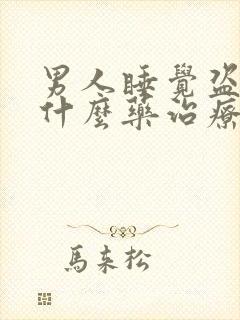 男人睡覺盜
什麼藥治療
馬來松